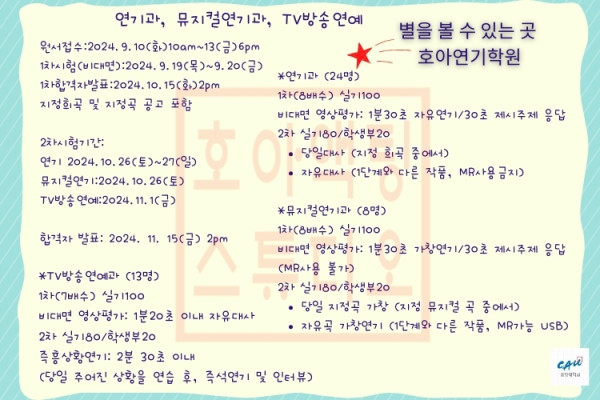 연기과, 뮤지컬연기과, TV방송연예
별을 볼 수 있는 곳
호아연기학원
원서접수:2024. 9.10(화)10am~13(금)6pm
1차시험(비대면):2024.9.19(목)~9.20(금)
1차합격자발표:2024.10.15(화)2pm
지정희곡 및 지정곡 공고 포함
2차시험기간:
연기 2024.10.26(토)~27(일)
뮤지컬연기:2024.10.26(토)
TV방송연예:2024.11.1(금)
합격자 발표: 2024. 11. 15(금) 2pm
*TV방송연예과 (13명)
1차(7배수) 실기100
비대면 영상평가: 1분20초 이내 자유대사
2차 실기80/학생부20
즉흥상황연기: 2분 30초 이내
(당일 주어진 상황을 연습 후, 즉석연기 및 인터뷰)
*연기과 (24명)
1차(8배수) 실기100
비대면 영상평가: 1분30초 자유연기/30초 제시주제 응답
2차 실기80/학생부20
• 당일대사 (지정 희곡 중에서)
• 자유대사 (1단계와 다른 작품, MR사용금지)
*뮤지컬연기과 (8명)
1차(8배수) 실기100
비대면 영상평가: 1분30초 가창연기/30초 제시주제 응답
(MR사용 불가)
2차 실기80/학생부20
• 당일 지정곡 가창 (지정 뮤지컬 곡 중에서)
• 자유곡 가창연기 (1단계와 다른 작품, MR가능 USB)
호아액팅
스튜디오
CAU
중앙대학교